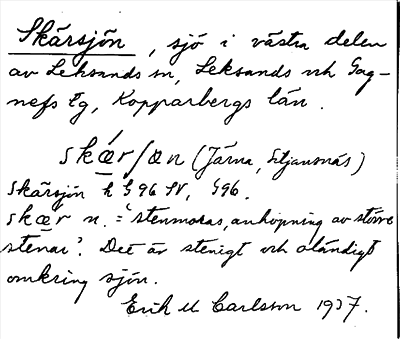 Skärsjön, sjö i västra delen
av Leksands sn, Leksands och Gag-
nefs tg, Kopparbergs län.
skær/øn (Järna, Siljansnäs)
Skärsjön k G 96 SV, G96.
skær n. = 'stenmoras, anhopning av större
stenar'. Det är stenigt och oländigt
omkring sjön.
Erik M Carlsson 1937.